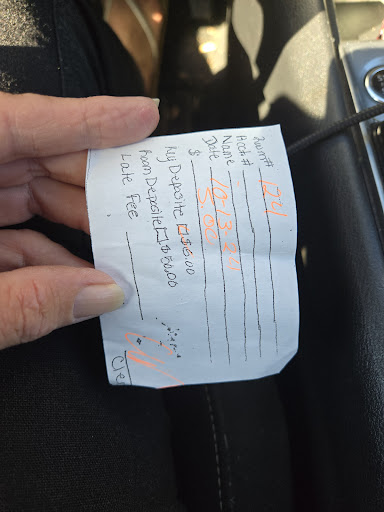 Room# 124
Acct #
Name
Date 10-13-20
$ 5.00
Key Deposite $5.00
Room Deposite $50.00
Late fee
Cler